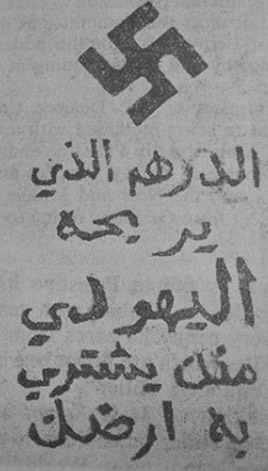 الدرهم الذي
يربحه
اليهودي
منك يشتري
به ارضك